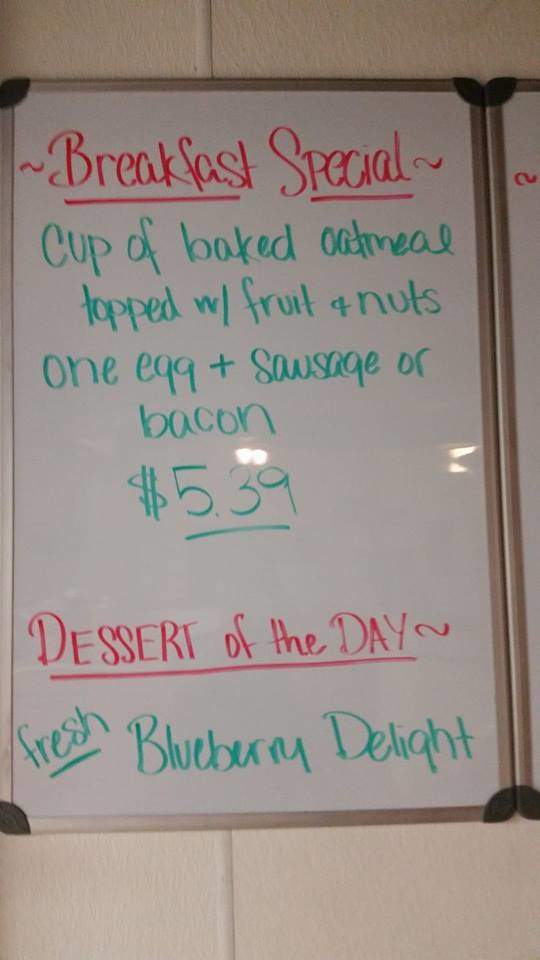 ~Breakfast Special~
cup of baked oatmeal
topped w/ fruit & nuts
one egg + sausage or
bacon
$5.39
DESSERT of the DAY~
fresh Blueberry Delight
~